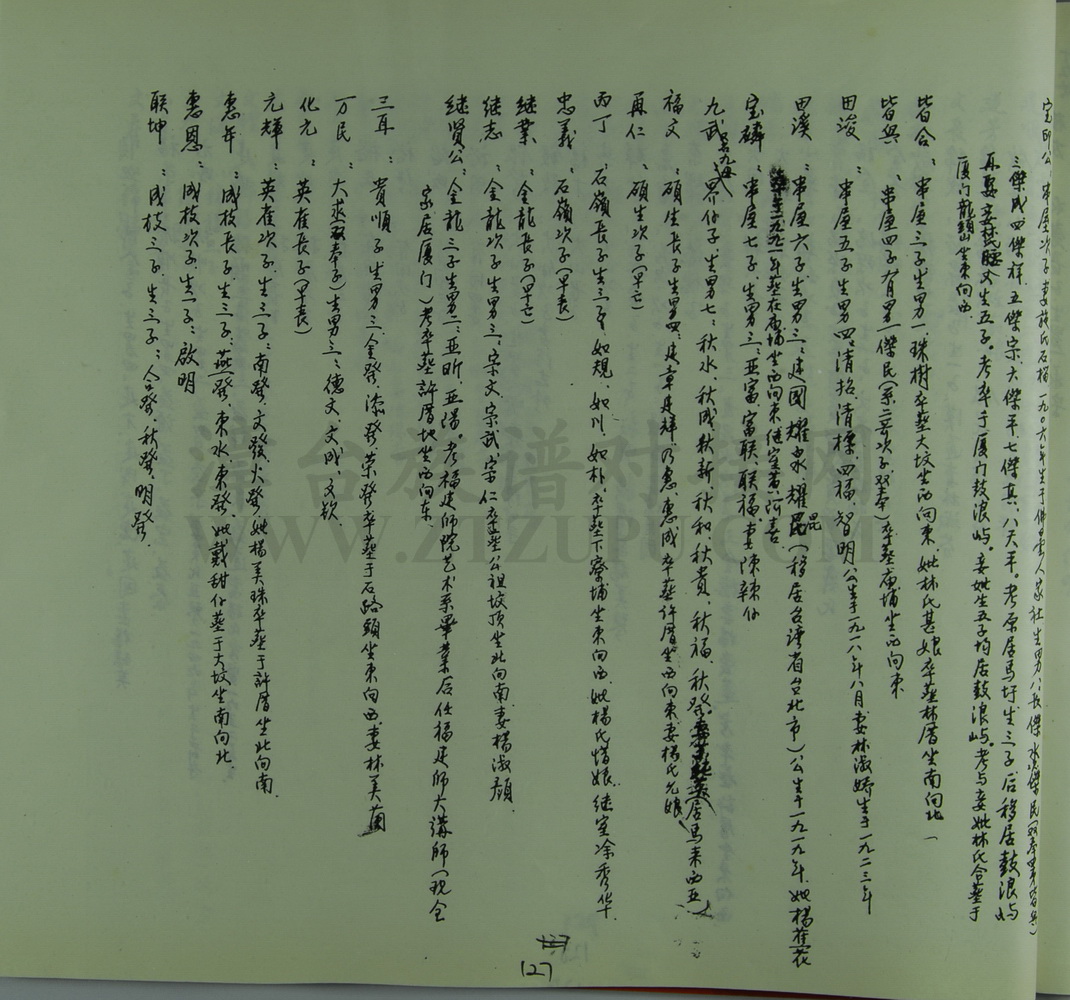 宝印公：串屋次子妻施氏石榴一九〇六年生于佛曇人家社生男八長傑水傑民（双奉男皆興）
三傑成四傑祥、五傑宗、六傑平、七傑其、八天平。考原居馬圩生三子后移居鼓浪屿
再娶妾林腰又生五子。考卒于厦门鼓浪屿。妾妣生五子均居鼓浪屿。考与妾妣林氏合葬于
厦门龍頭山坐東向西
皆合：串屋三子生男一珠樹卒葬大坟坐西向東、妣林氏甚娘卒葬林厝坐南向北
皆興：串屋四子有男一傑民（系二哥次子双奉）卒葬庙埔坐西向東
田浚：串屋五子生男四、清招、清標、四福、智明公生于一九一八年八月妻林淑嬌生于一九二三年
田溪：串屋六子生男三、建國、耀永、耀昆（移居台湾省台北市）公生于一九一九年、妣楊蕉花
一九九一年葬在庙埔坐西向東继室黄阿喜
宝磷：串屋七子、生男三、亚富、富联、联福、妻陳辣仔
九武：界仔子、生男七、秋水、秋成秋新、秋和、秋贵、秋福、秋發居馬来西亚
福文：碩生長子生男四、建章建祥、乃惠、惠成卒葬许厝坐西向東妻楊氏允娘
再仁：碩生次子（早亡）
丙丁：石嶺長子生三子、如規、如川、如朴、卒葬下寮埔坐東向西、妣楊氏惜娘、继室凃秀华
忠義：石嶺次子（早丧）
继業：金龍長子（早亡）
继志：金龍次子生男三、宗文、宗武、宗仁卒葬公祖坟頂坐北向南妻楊淑顏
继贤公：金龍三子生男二、亚昕、亚陽。考福建师院艺术系畢業后任福建师大講师（现全
家居厦门）考卒葬許厝地坐西向东
三耳：貴順子生男三、金發、添發、荣發卒葬于石路頭坐東向西、妻林美蘭
万民：大求双奉子）生男三、德文、文成、文欽
化元：英雀長子（早丧）
元輝：英雀次子、生三子、南發、文發、火發、妣楊美珠卒葬于許厝坐北向南
惠年：成枝長子生三子、燕發、東水、東發、妣戴甜仔葬于大坟坐南向北
惠恩：成枝次子、生一子、啟明
联坤：成枝三子、生三子、合發、秋發、明發
127
漳台族谱对接网
WWW.ZTZUPU.COM